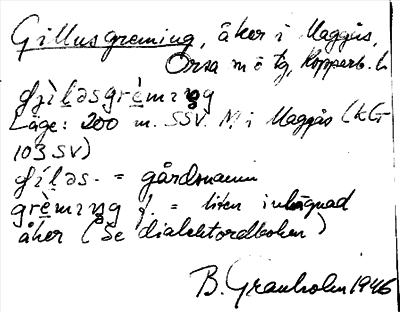 Gillusgreming, åker i Maggås,
Orsa sn ö tg, Kopparb. l.
Läge: 200 m. SSV. M i Maggås (KG
103 SV)
= gårdsnamn
f. = liten inhägnad
åker (Se dialektordboken)
B. Granholm 1946